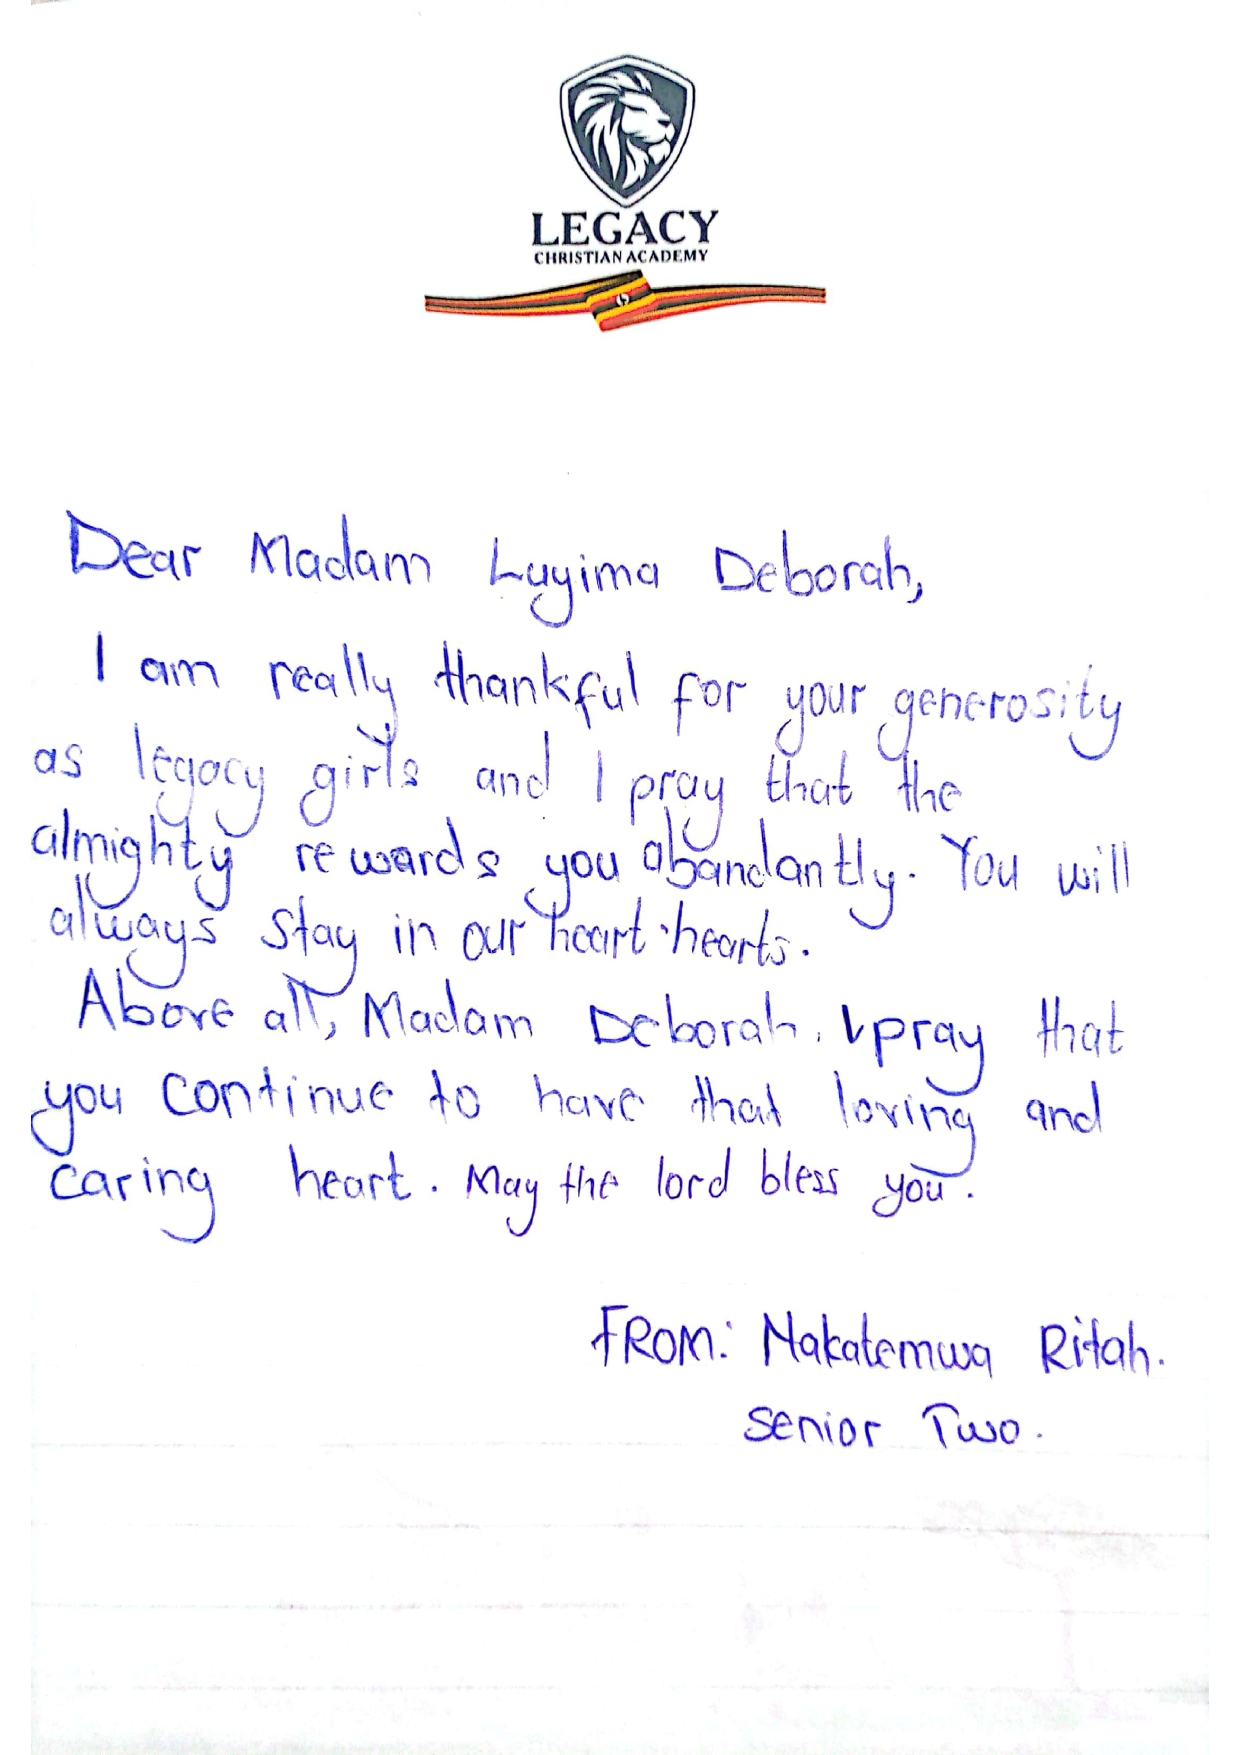 LEGACY
CHRISTIAN ACADEMY
Dear Madam Luyima Deborah,
I am really thankful for your generosity
as legacy girls and I pray that the
almighty rewards you abandantly. You will
always stay in our heart hearts.
Above all, Madam Deborah, I pray that
you continue to have that loving and
caring heart. May the lord bless you.
FROM: Nakatemwa Ritah.
Senior Two.